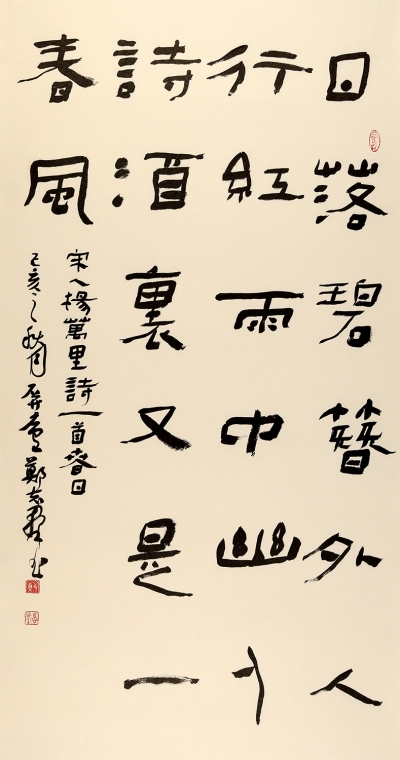 日落碧簪外人
行紅雨中幽人
詩酒裏又是一
春風
宋人楊萬里詩一首春日
己亥之秋月屏鄭志